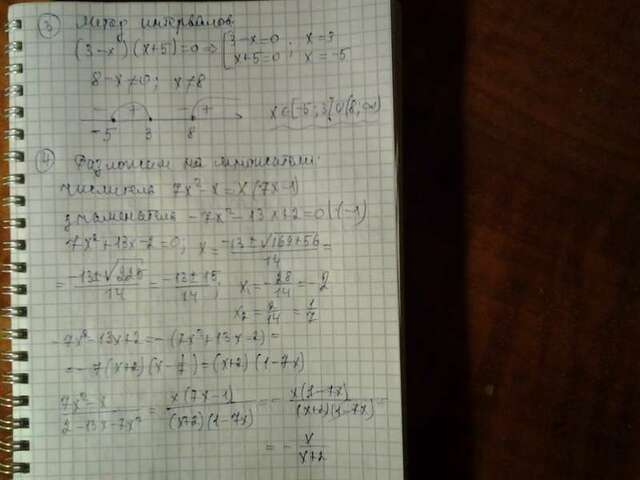 ③ Метод интервалов
(3-x)(x+5)=0 ⇒ [3-x=0 ; x=3
x+5=0 ; x=-5
8-x≠0; x≠8
- + - +
-5 3 8 x∈[-5;3]∪(8;∞)
④ Разложим на множители:
числитель 7x²-x=x(7x-1)
знаменатель -7x²-13x+2=0 |·(-1)
7x²+13x-2=0; x=(-13±√(169+56))/14=
=(-13±√225)/14=(-13±15)/14; x₁=-28/14=-2
x₂=2/14=1/7
-7x²-13x+2=-(7x²+13x-2)=
=-7(x+2)(x-1/7)=(x+2)(1-7x)
(7x²-x)/(2-13x-7x²)=x(7x-1)/((x+2)(1-7x))=-x(1-7x)/((x+2)(1-7x))=
=-x/(x+2)